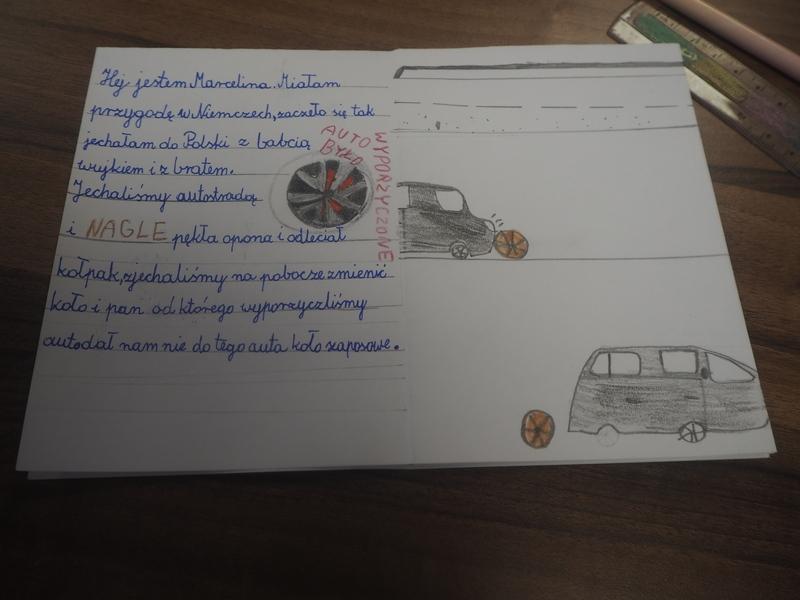 Hej jestem Marcelina. Miałam
przygodę w Niemczech, zaczeło się tak
jechałam do Polski z babcią
wujkiem i z bratem.
Jechaliśmy autostradą
i NAGLE pękła opona i odleciał
kołpak, zjechaliśmy na pobocze zmienić
koło i pan od którego wyporzyczliśmy
auto dał nam nie do tego auta koło zaposowe.
AUTO
BYŁO
WYPORZYCZONE